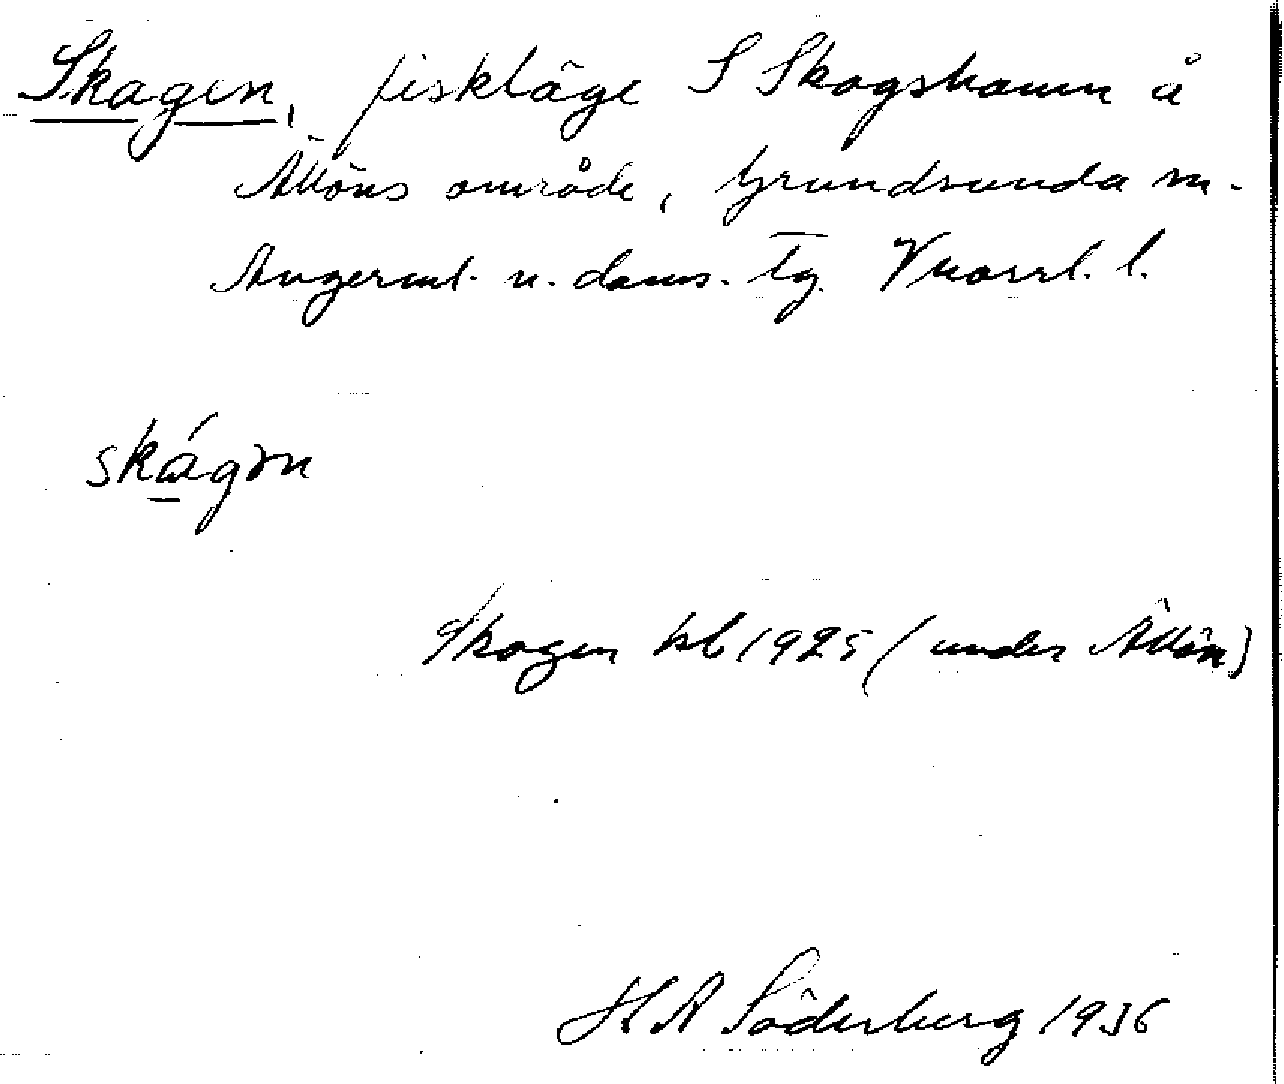 Skagen, fiskläge S Skagshamn å
Älöns område, Grundsunda sn.
Ångerml. n. doms. tg. Vnorrl. l.
skágən
Skagen kb 1925 (under Älön)
K A Söderberg 1936